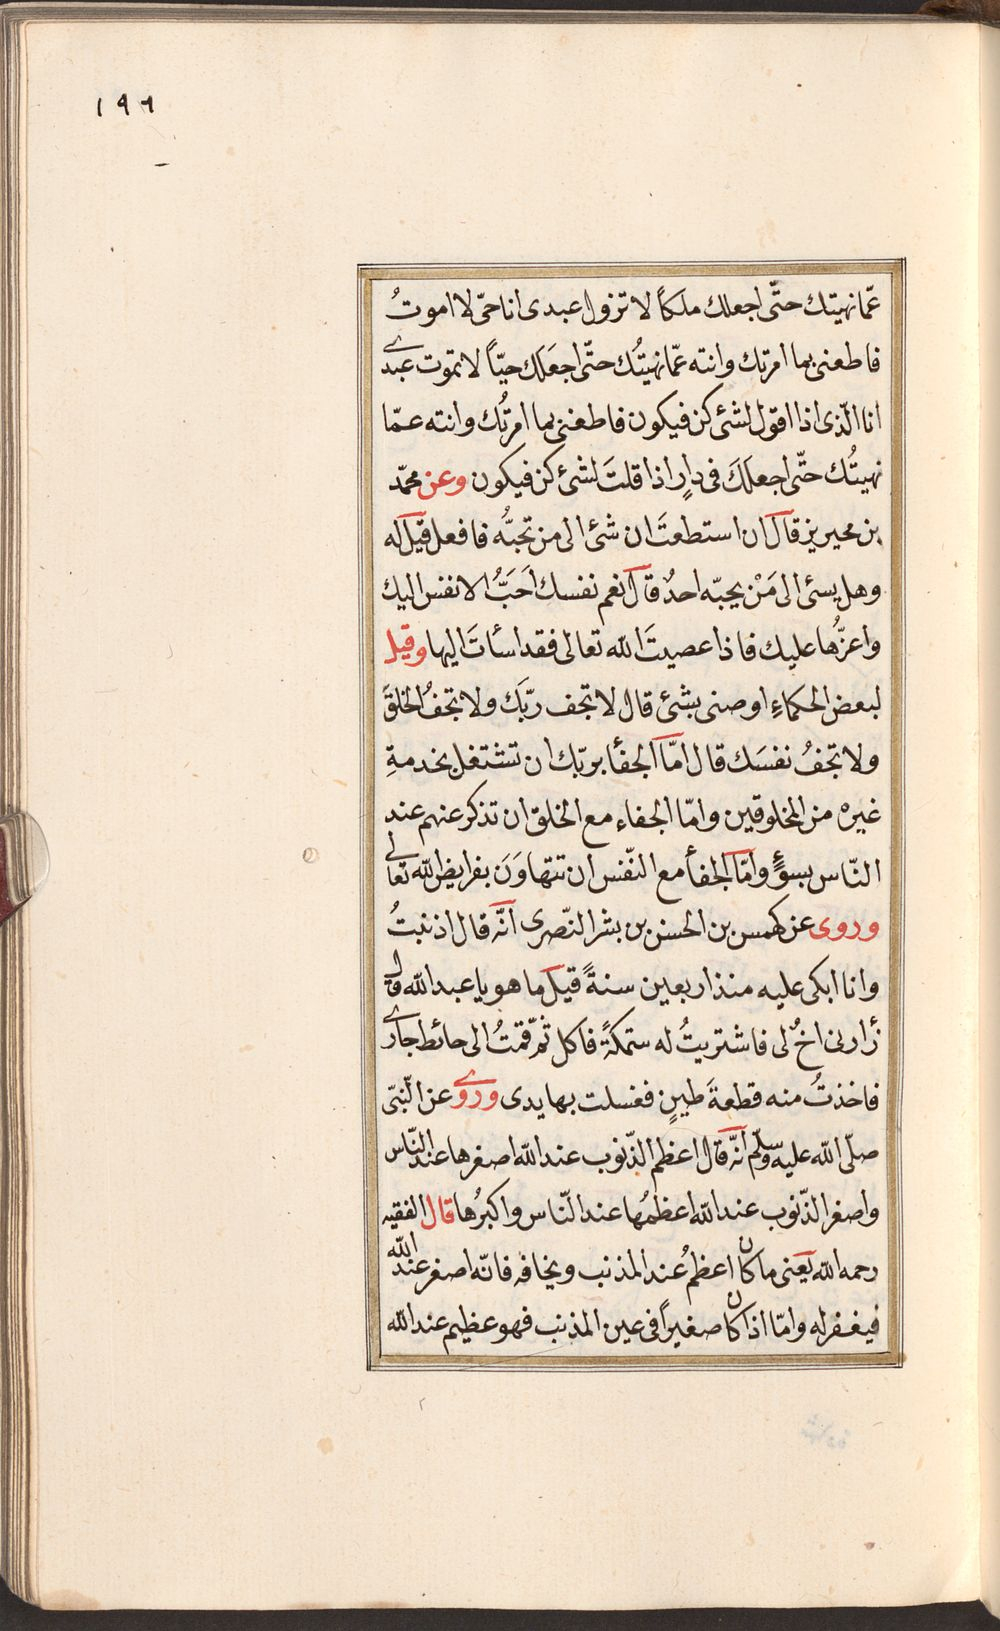 ١٩٦
عمّا نهيتك حتّى اجعلك ملكاً لا تزول عبدى انا حىّ لا اموتُ
فاطعنى بما امرتك وانته عمّا نهيتُك حتّى اجعَلَك حيّاً لا تموت عبدى
انا الّذى اذا اقول لشئ كن فيكون فاطعنى بما امرتُك وانته عمّا
نهيتُك حتّى اجعلكَ فى دارٍ اذا قلتَ لشئ كن فيكون وعن محمّد
بن محيريز قال ان استطعتَ ان شئ الى من تحبُّه فافعل قيل له
وهل يسئى الى مَنْ يحبّه احدٌ قال نعم نفسك اَحَبُّ الانفس اليك
واعزُّها عليك فاذا عصيتَ الله تعالى فقد اسأتَ اليها وقيل
لبعض الحكماءِ اوصنى بشئ قال لا تجف ربّكَ ولا تجفُ الخلقَ
ولا تجفُ نفسَك قال امّا الجفأ بربّك ان تشتغل بخدمةِ
غيره من المخلوقين وامّا الجفاء مع الخلق ان تذكر عنهم عند
النّاس بسوءٍ وامّا الجفأ مع النّفس ان تتهاوَنَ بفرايض الله تعالى
وروى عن كهمس بن الحسن بن بشر النّصرى انّه قال اذنبتُ
وانا ابكى عليه منذ اربعين سنةً قيل ما هو يا عبد الله قال
زارنى اخٌ لى فاشتريتُ له سمكةً فاكل ثمّ قمتُ الى حائط جارى
فاخذتُ منه قطعةَ طينٍ فغسلت بها يدى وروى عن النّبىّ
صلّى الله عليه وسلّم انّه قال اعظم الذّنوب عند الله اصغرها عند النّاس
واصغر الذّنوب عند الله اعظمُها عند النّاس واكبرُها قال الفقيه
رحمه الله يعنى ما كان اعظمُ عند المذنب ويخافه فانّه اصغر عند الله
فيغفر له وامّا اذا كان صغيراً فى عين المذنب فهو عظيم عند الله